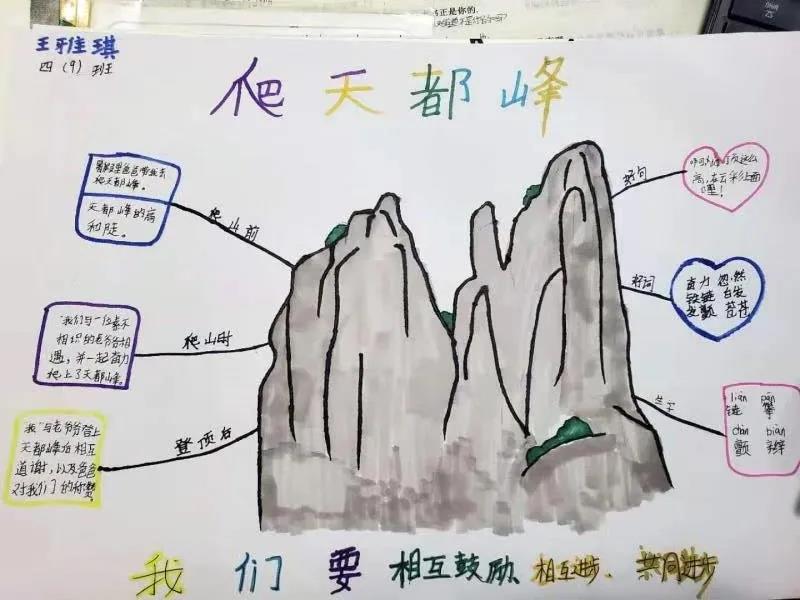 王雅琪
四（9）班
爬天都峰
暑假里爸爸带我去
爬天都峰。
天都峰的高
和陡。
爬山前
"我们与一位素不
相识的老爷爷相
遇，并一起奋力
爬上了天都峰。
爬山时
"我"与老爷爷登上
天都峰后相互
道谢，以及爸爸
对我们的称赞。
登顶后
好句
高，在云彩上面
哩！
好词
奋力 忽然
铁链 白发
发颤 苍苍
生字
liàn pān
链 攀
chàn biàn
颤 辫
我们要相互鼓励、相互进步、共同进步